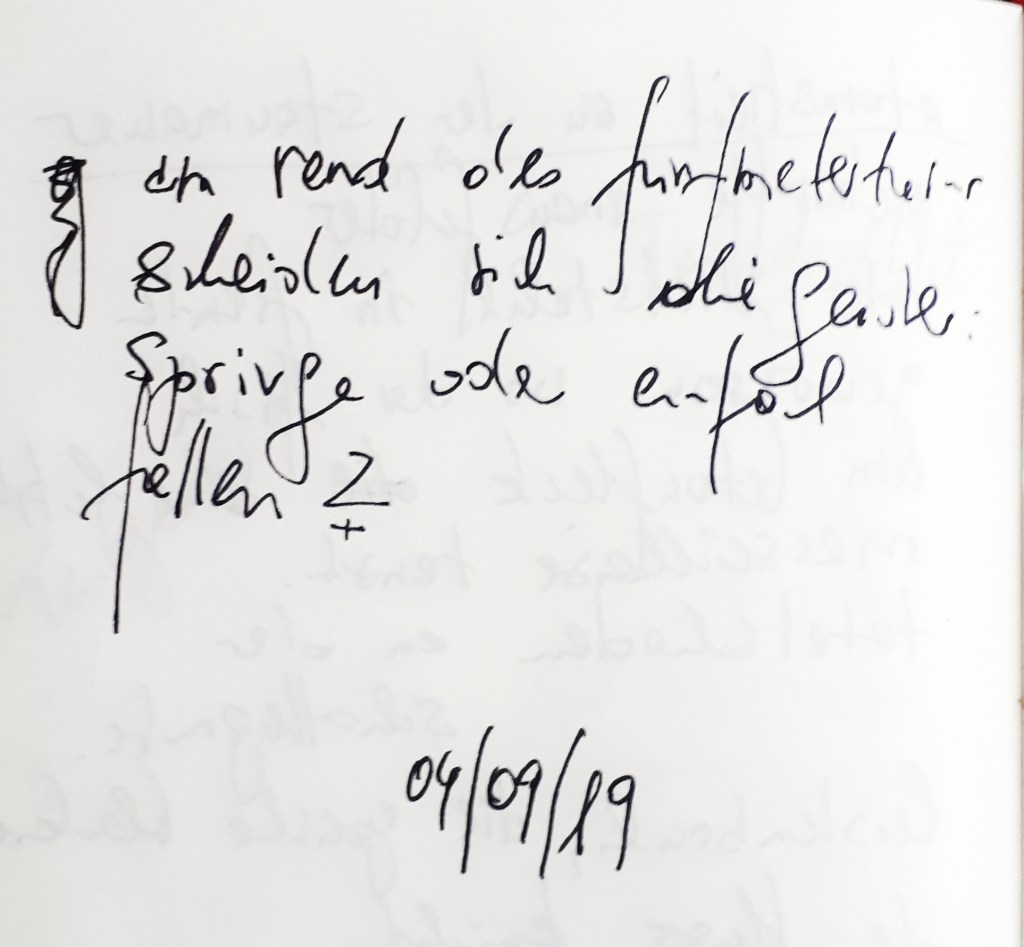 am rand des fünfmeterturm
scheiden sich die geister:
springe oder einfach
fallen
04/09/19